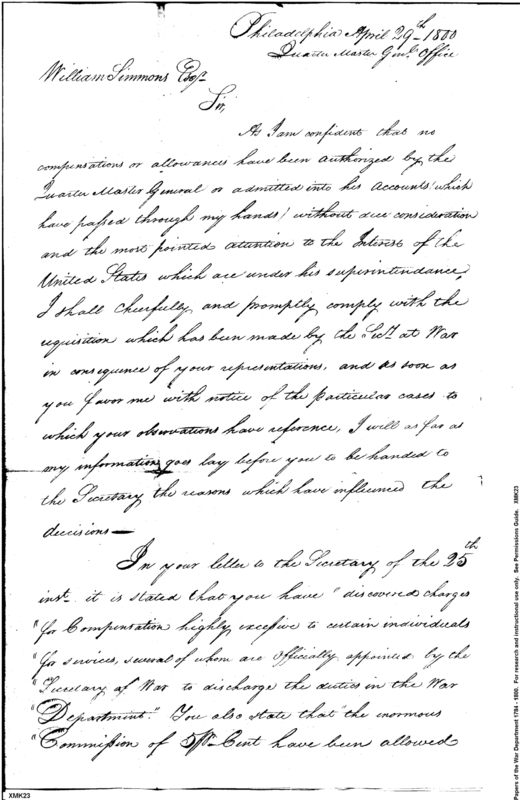 Philadelphia April 29th 1800
Quarter Master Genl. Office
William Simmons Esqr.
Sir,
As I am confident that no
compensations or allowances have been authorized by the
Quarter Master General or admitted into his accounts (which
have passed through my hands) without due consideration
and the most pointed attention to the Interest of the
United States which are under his superintendance,
I shall cheerfully and promptly comply with the
requisition which has been made by the Secy. at War
in consequence of your representations, and as soon as
you favor me with notice of the particular cases to
which your observations have reference, I will as far as
my information goes lay before you to be handed to
the Secretary the reasons which have influenced the
decisions—
In your letter to the Secretary of the 25th
inst. it is stated that you have "discovered charges
"for Compensation highly excessive to certain individuals
"for services, several of whom are Officially appointed by the
"Secretary of War to discharge the duties in the War
"Department." You also state that "the enormous
"Commission of 5 P Cent have been allowed
XMK23
Papers of the War Department 1784 - 1800. For research and instructional use only. See Permissions Guide. XMK23